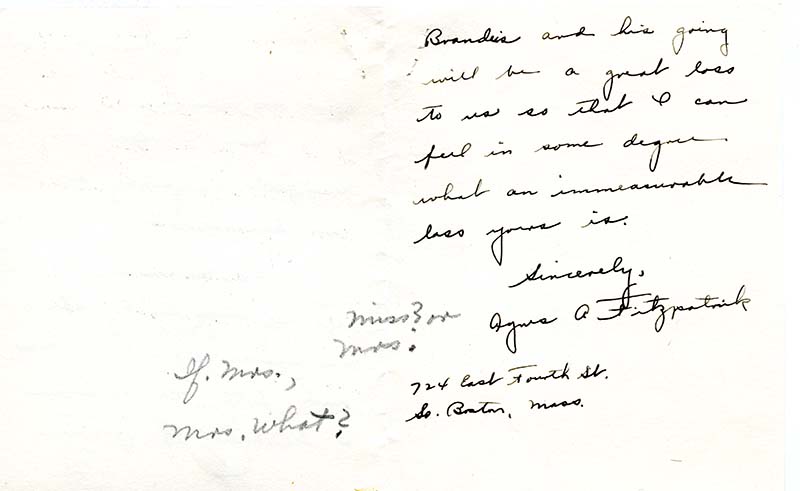 Brandeis and his going
will be a great loss
to us so that I can
feel in some degree
what an immeasurable
loss yours is.
Sincerely,
Agnes A Fitzpatrick
724 East Fourth St.
So. Boston, Mass.
Miss? or
Mrs.?
If. Mrs.,
Mrs. What?